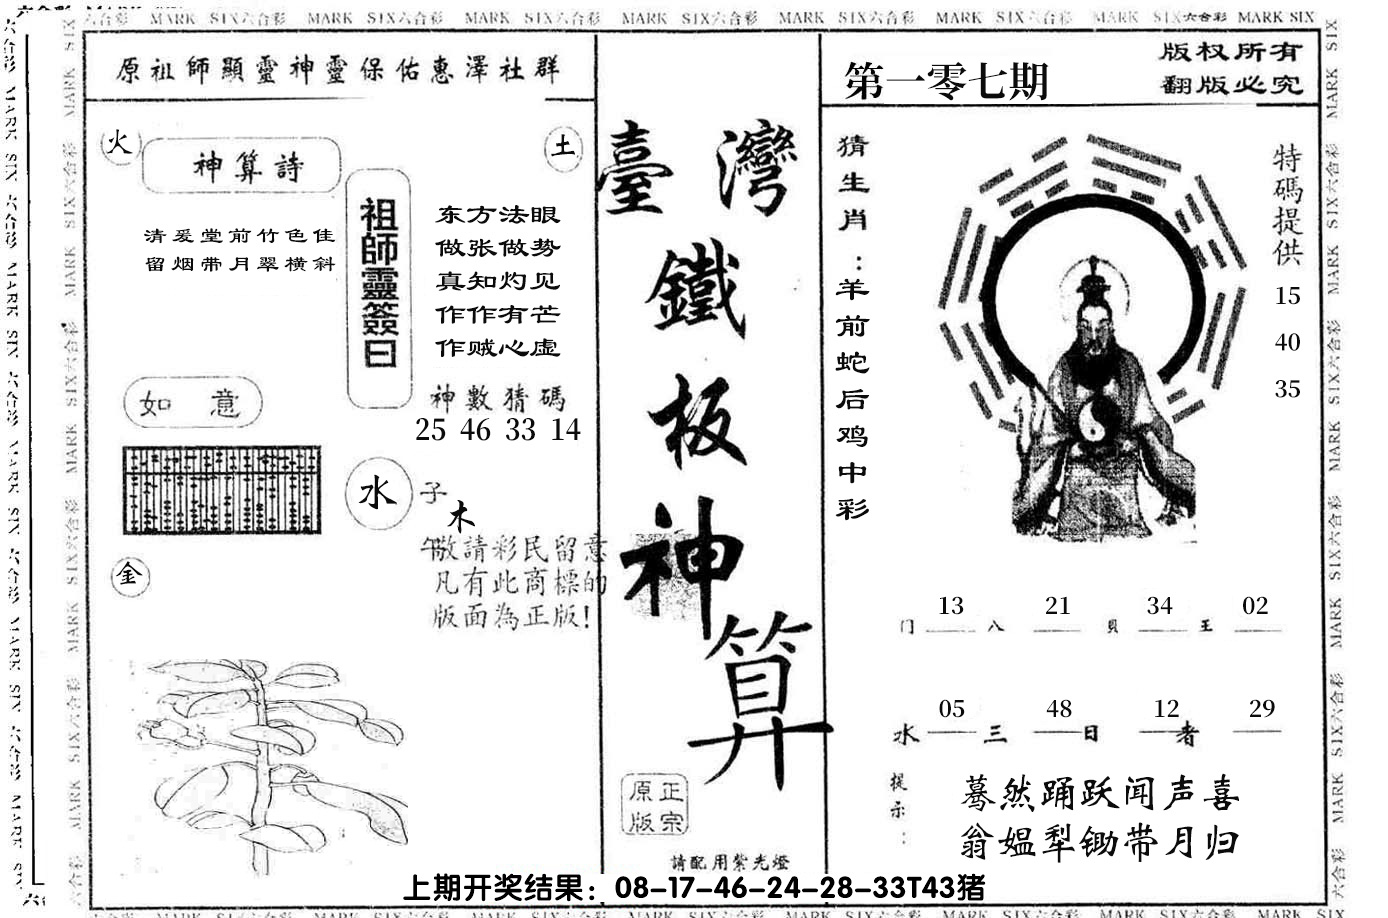 六合彩 MARK SIX六合彩 MARK SIX六合彩 MARK SIX六合彩 MARK SIX六合彩 MARK SIX六合彩 MARK SIX六合彩 MARK SIX六合彩 MARK SIX
原祖師顯靈神靈保佑惠澤社群
火
神算詩
清爱堂前竹色佳
留烟带月翠横斜
土
祖師靈簽曰
东方法眼
做张做势
真知灼见
作作有芒
作贼心虚
神數猜碼
25 46 33 14
如意
水
子
木
午
敬請彩民留意
凡有此商標的
版面為正版!
金
臺灣
鐵
板
神
算
正宗
原版
請配用紫光燈
第一零七期
版权所有
翻版必究
猜生肖：羊前蛇后鸡中彩
特碼提供
15
40
35
13 21 34 02
门 八 貝 王
05 48 12 29
水 三 日 者
提示：
蓦然踊跃闻声喜
翁媪犁锄带月归
上期开奖结果：08-17-46-24-28-33T43猪